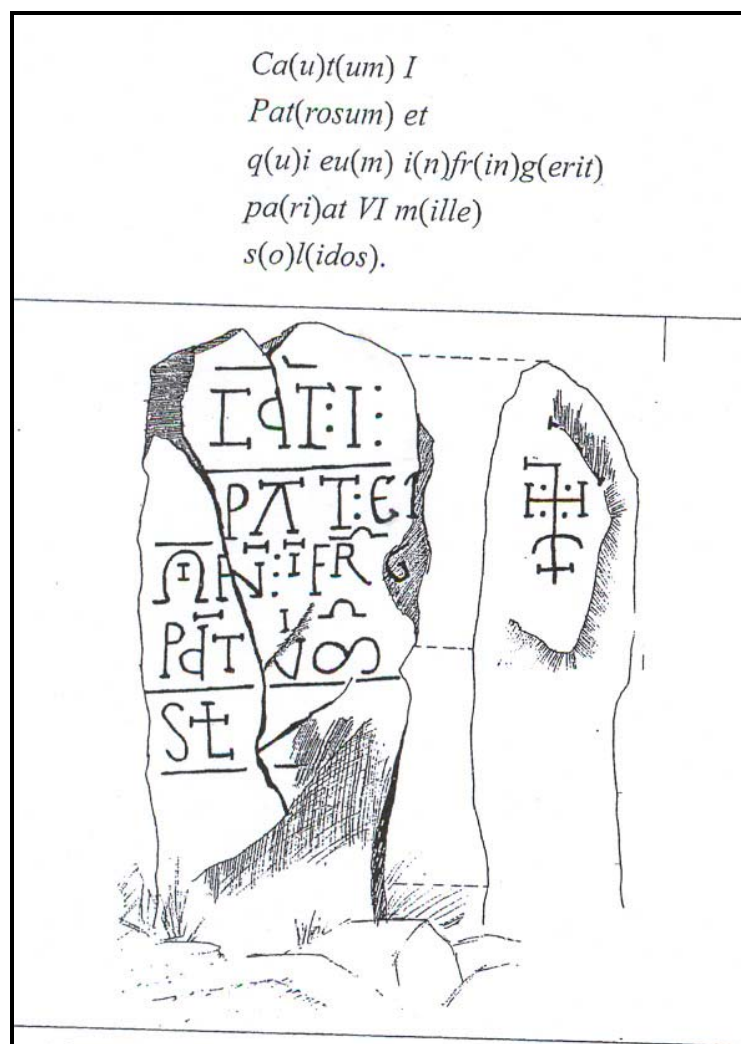 Ca(u)t(um) I
Pat(rosum) et
q(u)i eu(m) i(n)fr(in)g(erit)
pa(ri)at VI m(ille)
s(o)l(idos).
PAT:E
PAT
SL